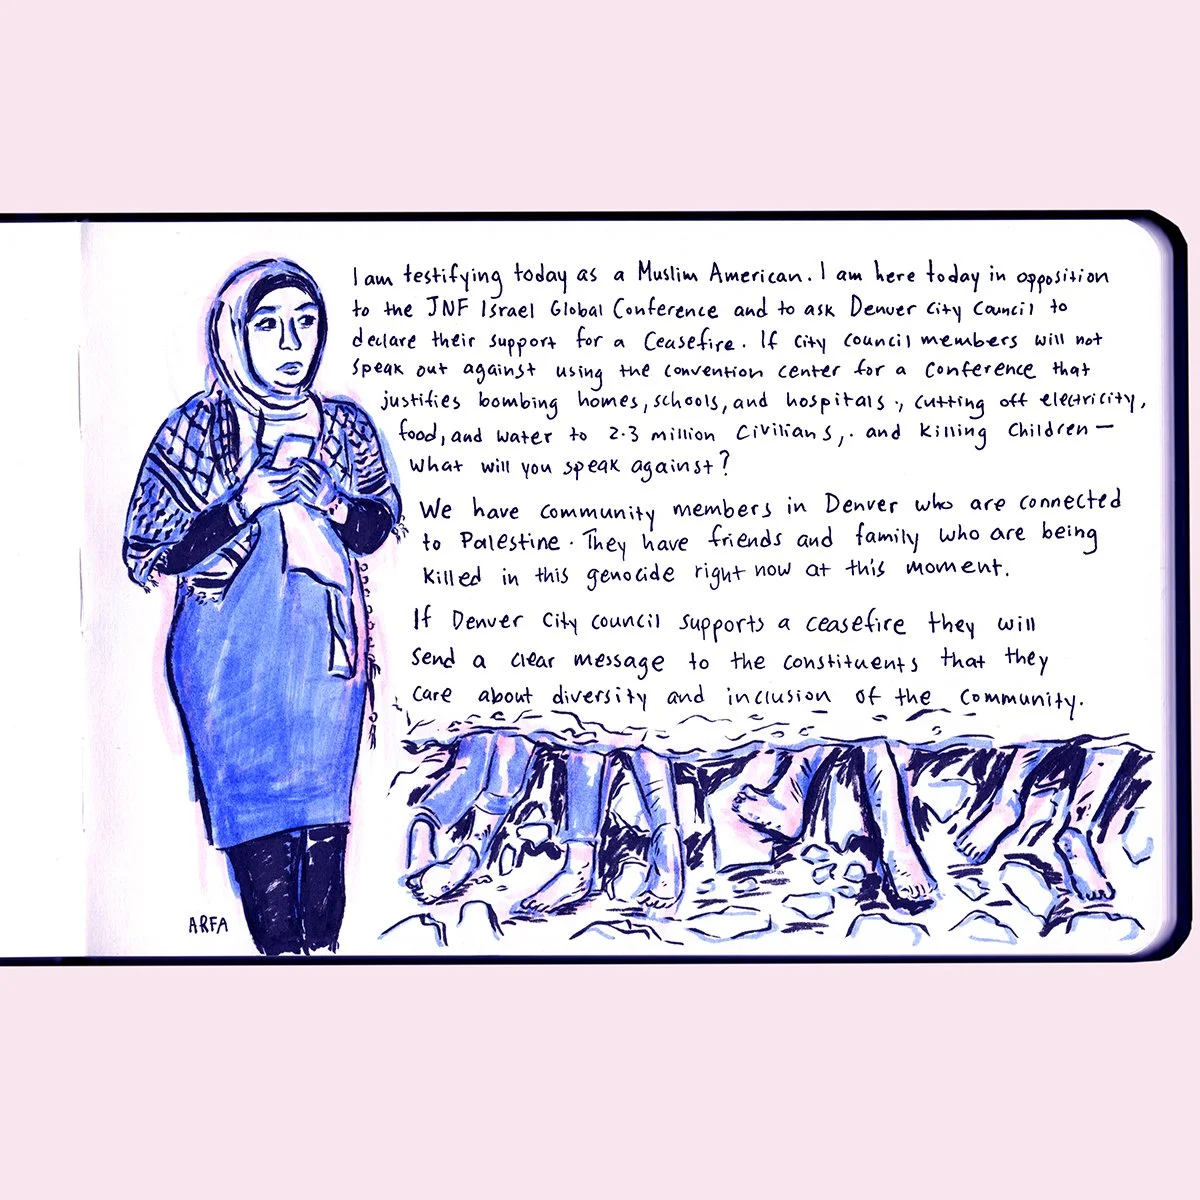 I am testifying today as a Muslim American. I am here today in opposition
to the JNF Israel Global Conference and to ask Denver City Council to
declare their support for a Ceasefire. If city council members will not
speak out against using the convention center for a conference that
justifies bombing homes, schools, and hospitals., cutting off electricity,
food, and water to 2.3 million civilians,. and killing children—
what will you speak against?
We have community members in Denver who are connected
to Palestine. They have friends and family who are being
killed in this genocide right now at this moment.
If Denver City council supports a ceasefire they will
send a clear message to the constituents that they
care about diversity and inclusion of the community.
ARFA